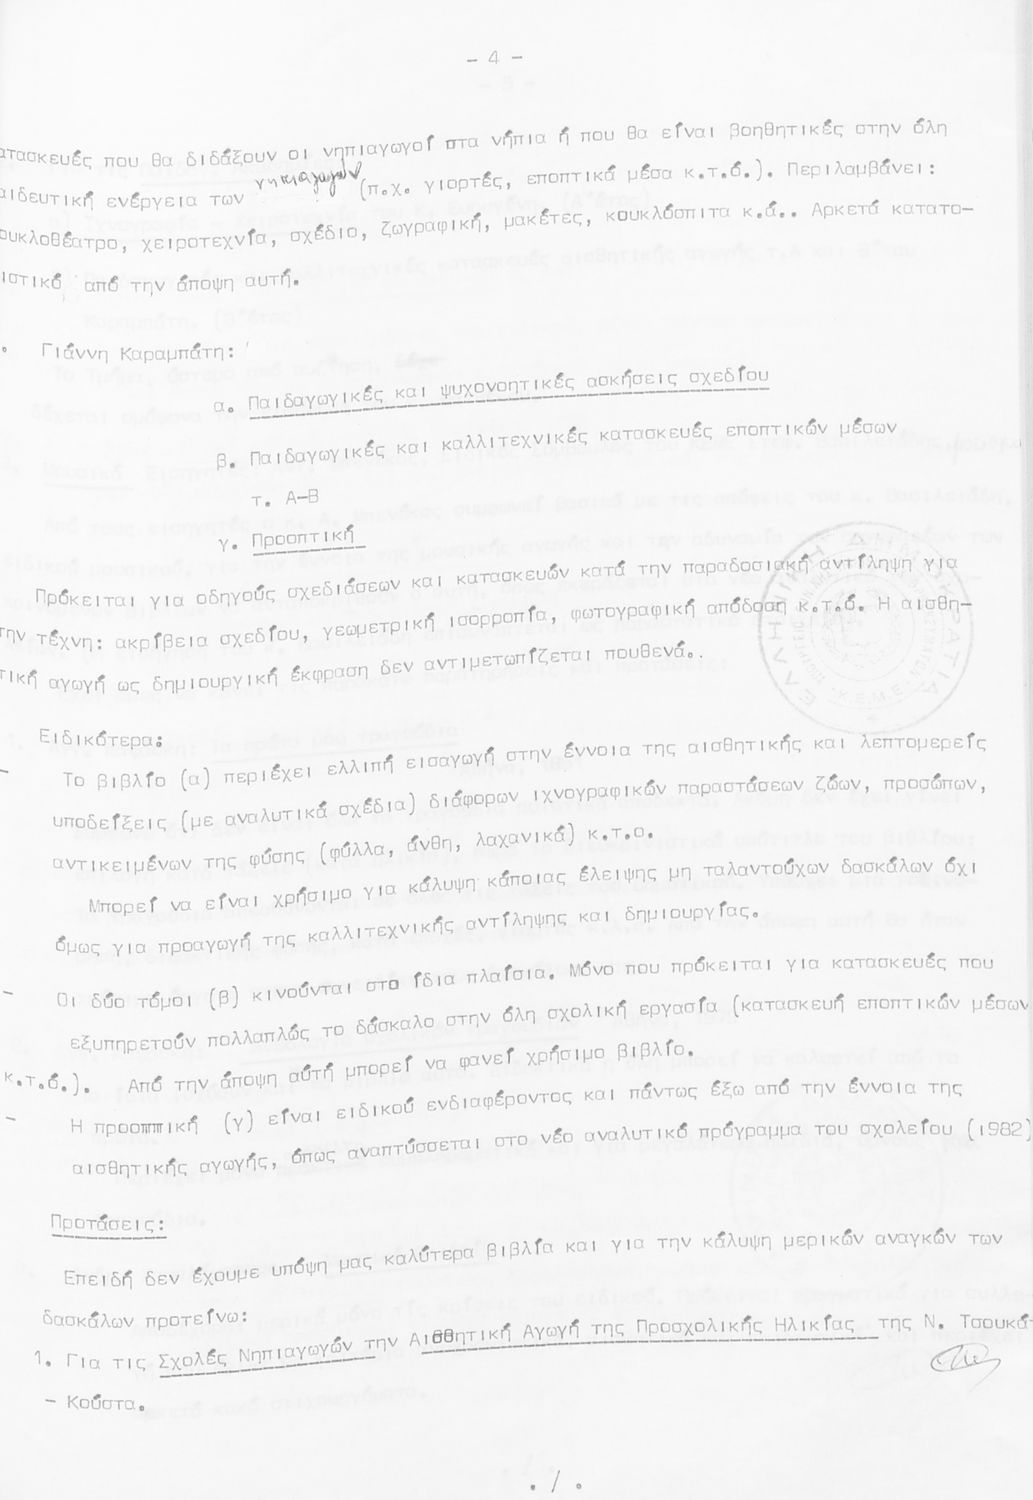 - 4 -
ατασκευές που θα διδάξουν οι νηπιαγωγοί στα νήπια ή που θα είναι βοηθητικές στην όλη
αιδευτική ενέργεια των νηπιαγωγών (π.χ. γιορτές, εποπτικά μέσα κ.τ.ό.). Περιλαμβάνει:
ουκλοθέατρο, χειροτεχνία, σχέδιο, ζωγραφική, μακέτες, κουκλόσπιτα κ.ά.. Αρκετά κατατο-
ιστικό από την άποψη αυτή.
. Γιάννη Καραμπάτη:
α. Παιδαγωγικές και ψυχονοητικές ασκήσεις σχεδίου
β. Παιδαγωγικές και καλλιτεχνικές κατασκευές εποπτικών μέσων
τ. Α-Β
γ. Προοπτική
Πρόκειται για οδηγούς σχεδιάσεων και κατασκευών κατά την παραδοσιακή αντίληψη για
την τέχνη: ακρίβεια σχεδίου, γεωμετρική ισορροπία, φωτογραφική απόδοση κ.τ.ό. Η αισθη-
τική αγωγή ως δημιουργική έκφραση δεν αντιμετωπίζεται πουθενά..
Ειδικότερα:
- Το βιβλίο (α) περιέχει ελλιπή εισαγωγή στην έννοια της αισθητικής και λεπτομερείς
υποδείξεις (με αναλυτικά σχέδια) διάφορων ιχνογραφικών παραστάσεων ζώων, προσώπων,
αντικειμένων της φύσης (φύλλα, άνθη, λαχανικά) κ.τ.ο.
Μπορεί να είναι χρήσιμο για κάλυψη κάποιας έλειψης μη ταλαντούχων δασκάλων όχι
όμως για προαγωγή της καλλιτεχνικής αντίληψης και δημιουργίας.
- Οι δύο τόμοι (β) κινούνται στο ίδια πλαίσια. Μόνο που πρόκειται για κατασκευές που
εξυπηρετούν πολλαπλώς το δάσκαλο στην όλη σχολική εργασία (κατασκευή εποπτικών μέσων
κ.τ.ό.). Από την άποψη αύτή μπορεί να φανεί χρήσιμο βιβλίο.
- Η προοππική (γ) είναι ειδικού ενδιαφέροντος και πάντως έξω από την έννοια της
αισθητικής αγωγής, όπως αναπτύσσεται στο νέο αναλυτικό πρόγραμμα του σχολείου (1982)
Προτάσεις:
Επειδή δεν έχουμε υπόψη μας καλύτερα βιβλία και για την κάλυψη μερικών αναγκών των
δασκάλων προτείνω:
1. Για τις Σχολές Νηπιαγωγών την Αισθητική Αγωγή της Προσχολικής Ηλικίας της Ν. Τσουκά-
- Κούστα.
./.